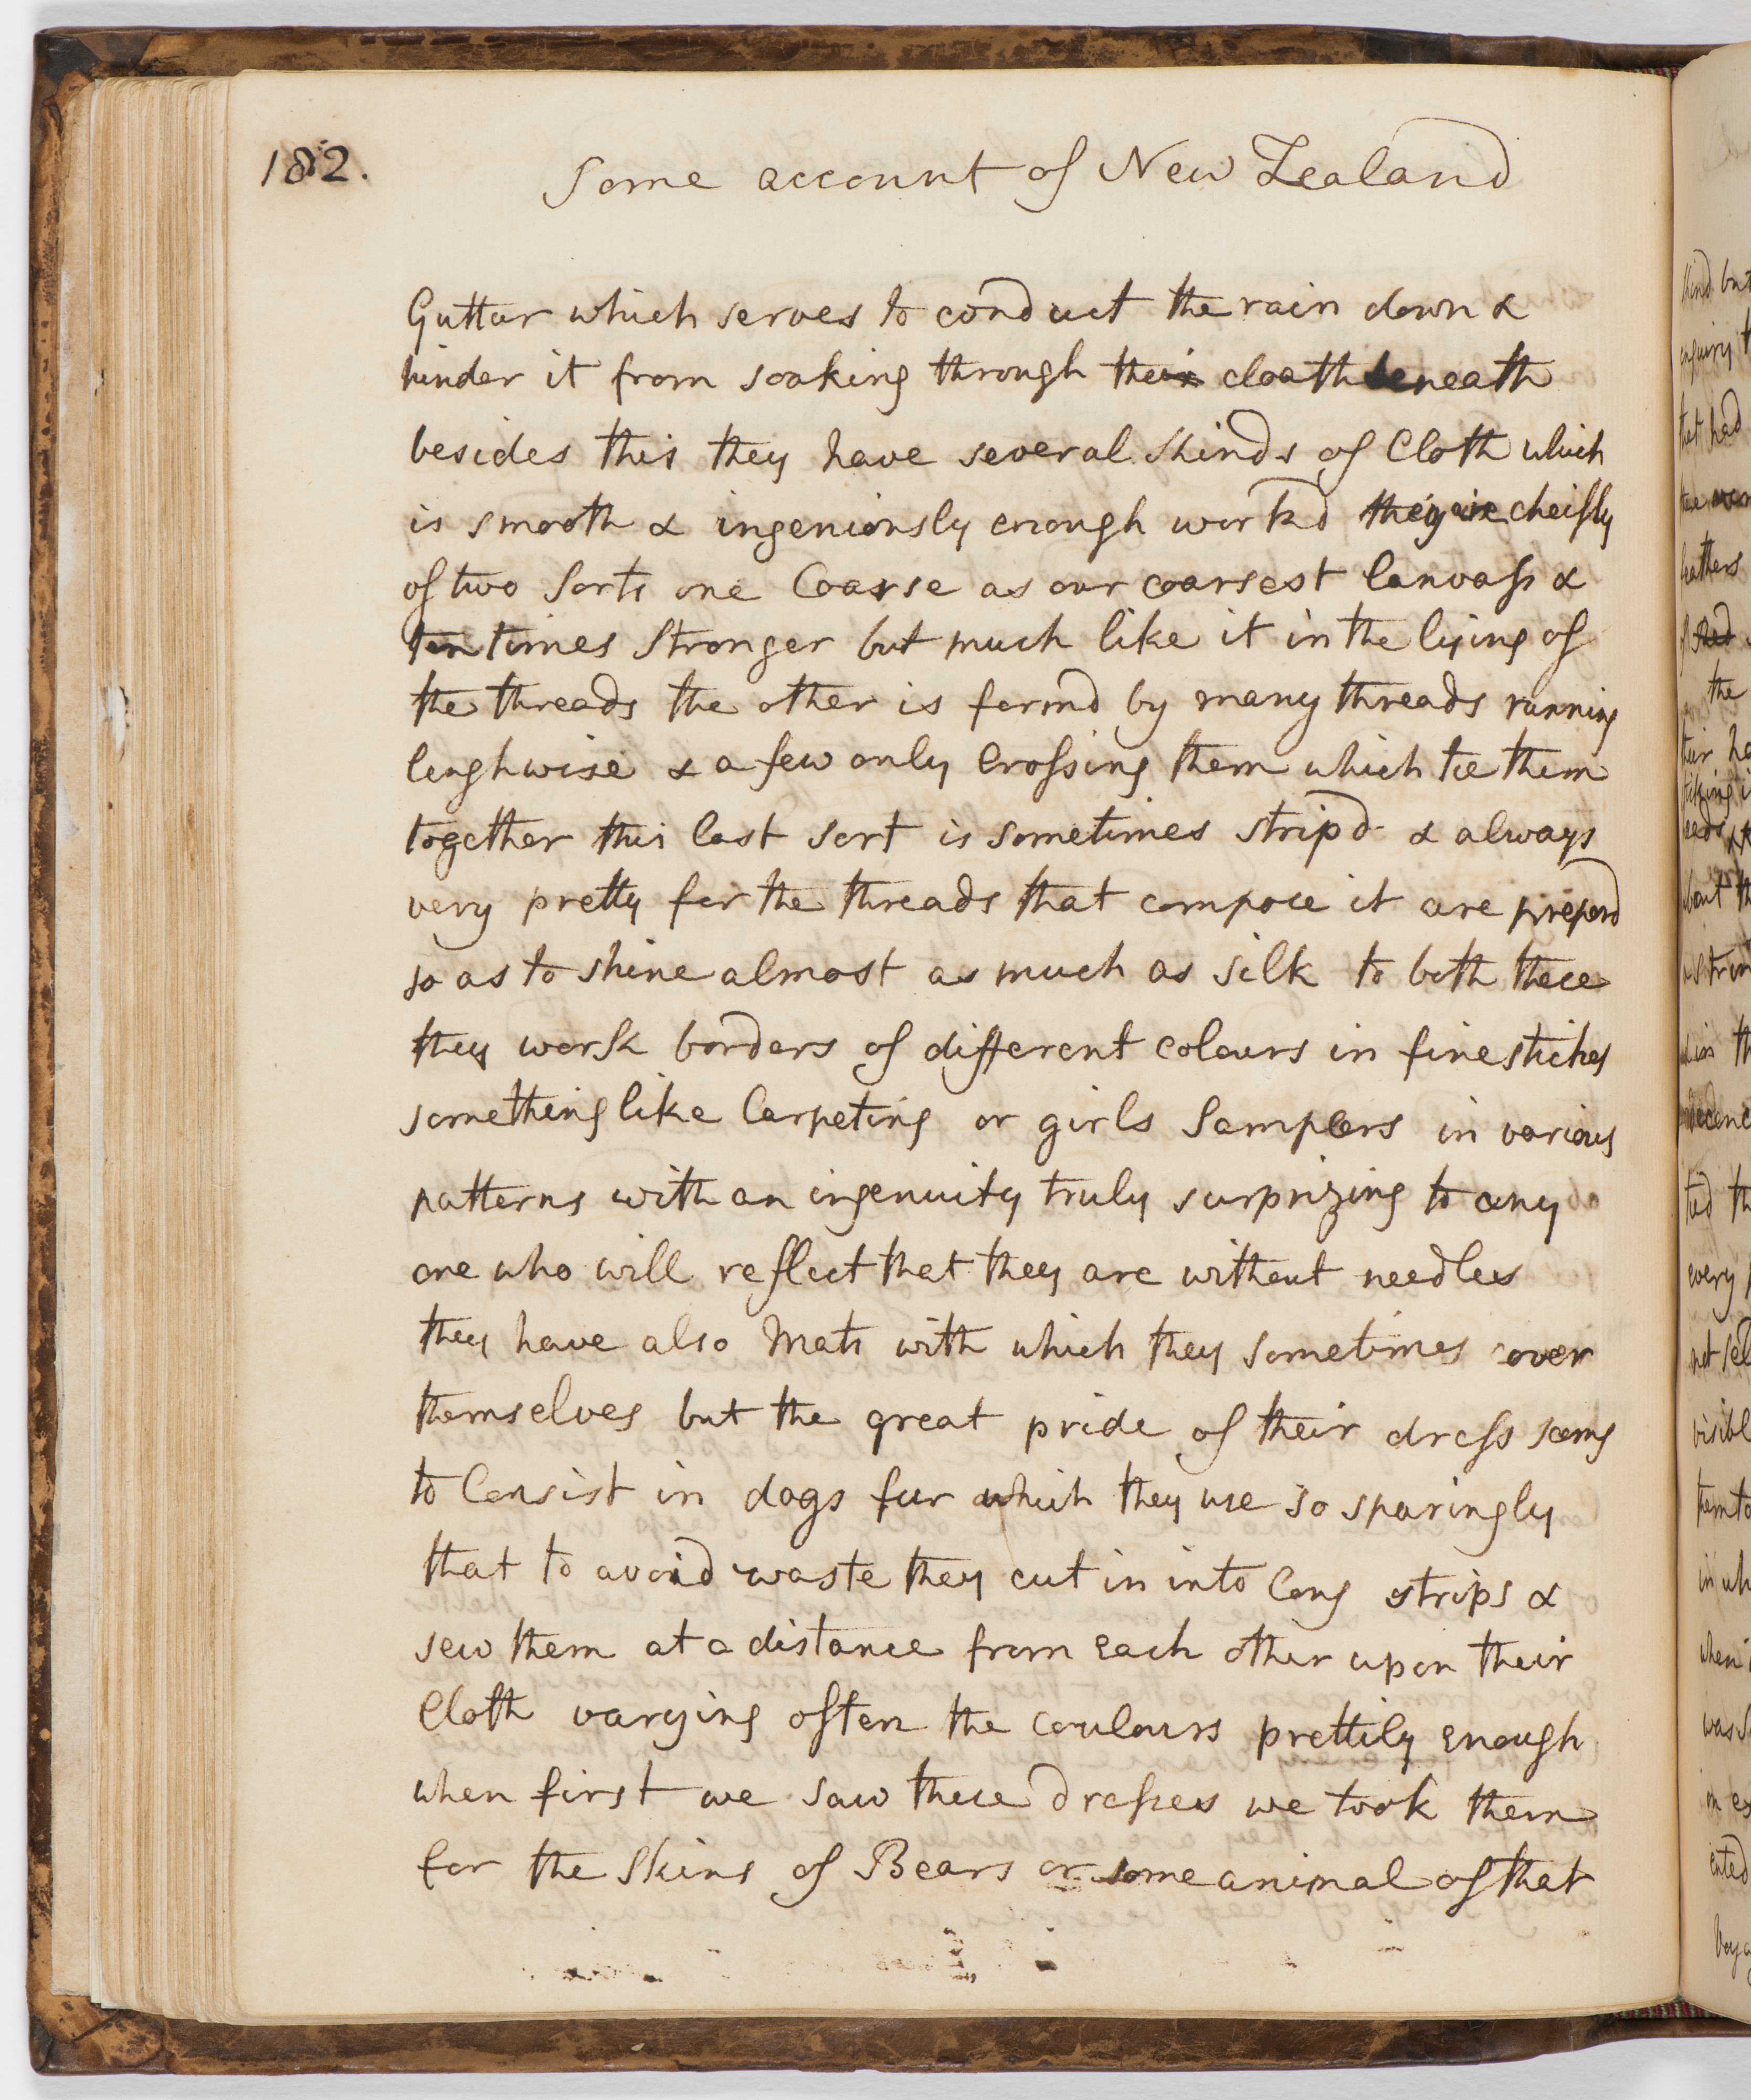 182.
Some account of New Zealand
Guttur which serves to conduct the rain down &
hinder it from soaking through their cloath beneath
besides this they have several kinds of Cloth which
is smooth & ingeniously enough workd they are cheifly
of two sorts one Coarse as our coarsest Canvass &
ten times stronger but much like it in the lying of
the threads the other is formd by many threads running
lenghwise & a few only Crossing them which tie them
together this last sort is sometimes stripd & always
very pretty for the threads that compose it are prepard
so as to shine almost as much as silk to both these
they work borders of different colours in fine stiches
something like Carpeting or girls Samplers in various
patterns with an ingenuity truly surprizing to any
one who will reflect that they are without needles
they have also Mats with which they sometimes cover
themselves but the great pride of their dress seems
to Consist in dogs fur which they use so sparingly
that to avoid waste they cut in into long strips &
sew them at a distance from Each other upon their
Cloth varying often the coulours prettily enough
when first we saw these dresses we took them
for the Skins of Bears or some animal of that